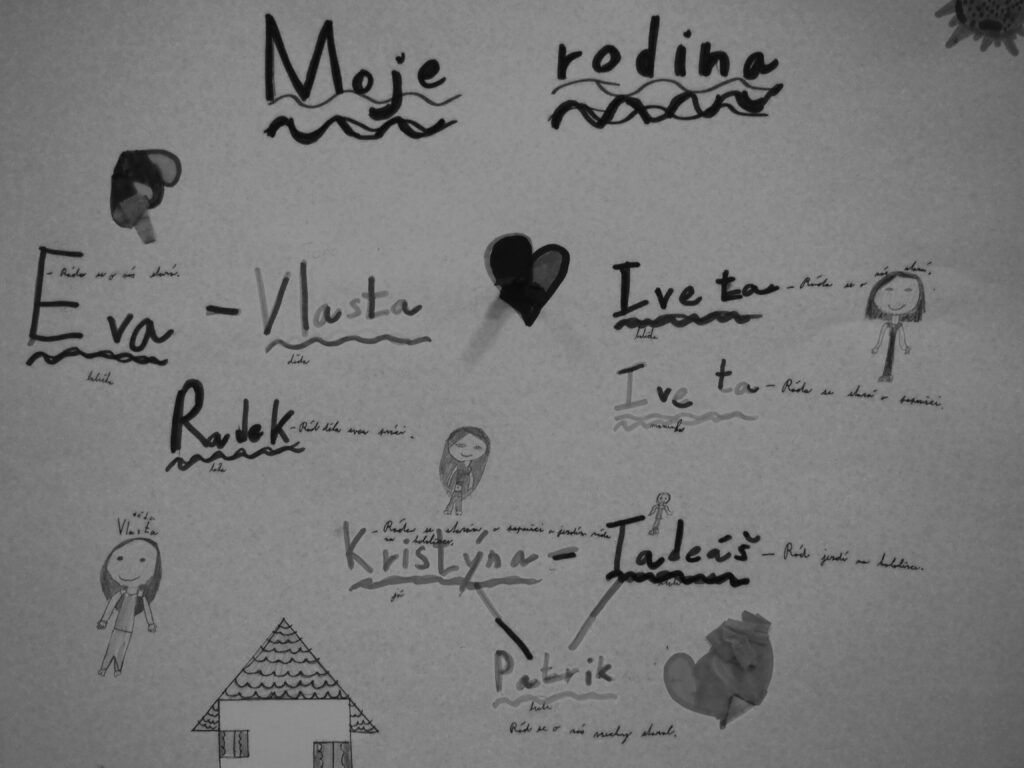 Moje rodina
Eva - Vlasta
- Ráda se o nás stará.
babička
děda
Iveta - Ráda se o nás stará.
babička
Iveta - Ráda se stará o
maminka
Radek - Rád dělá svou práci.
táta
děda
Vlasta
Kristýna - Tadeáš - Rád jezdí na koloběžce.
- Ráda se starám o a jezdím ráda
na koloběžce.
já
Patrik
Rád se o nás všechny staral.